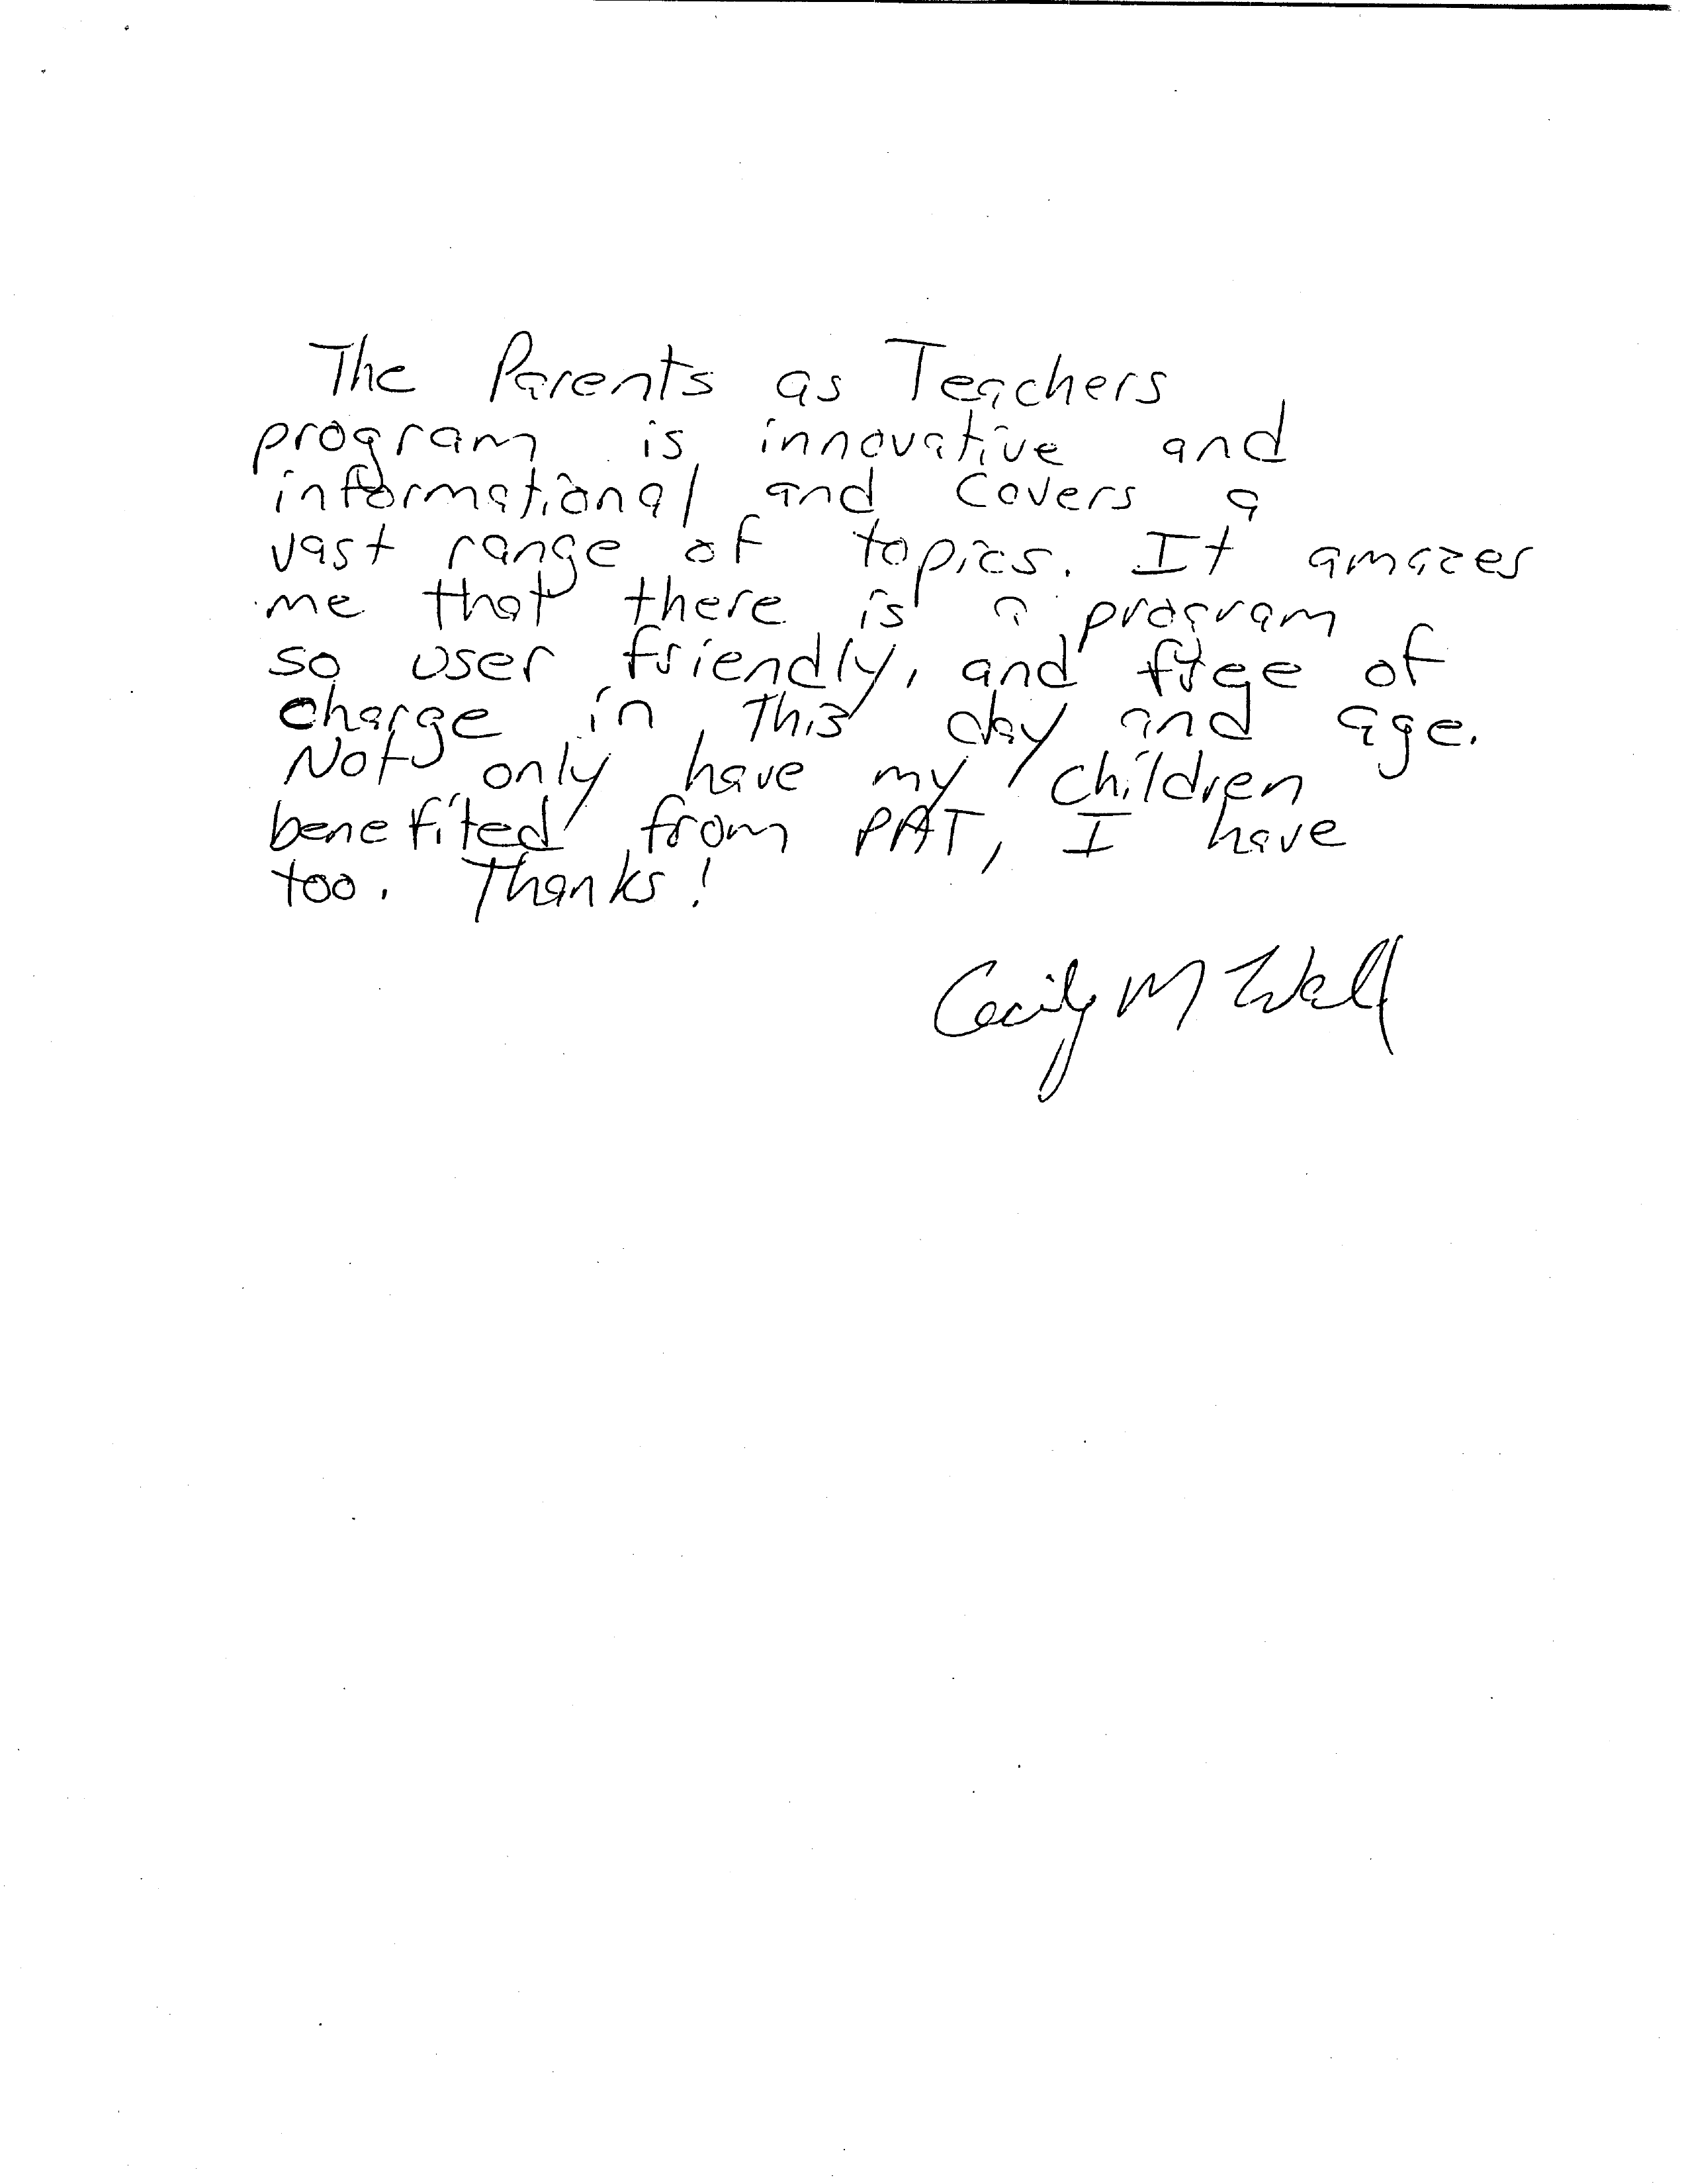 The Parents as Teachers
program is innovative and
informational and covers a
vast range of topics. It amazes
me that there is a program
so user friendly, and free of
charge in this day and age.
Not only have my children
benefited from PAT, I have
too. Thanks!
Cecily M Wall